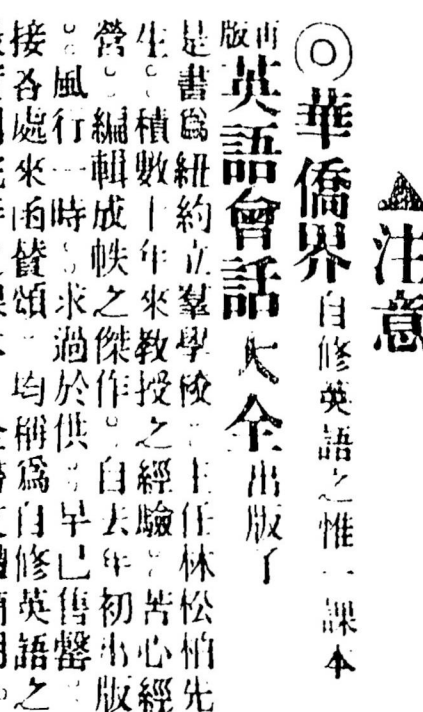 ▲注意
◎華僑界自修英語之惟一課本
再版英語會話大全出版了
是書爲紐約立羣學校、主任林松柏先
生。積數十年來教授之經驗。苦心經
營。編輯成帙之傑作。自去年初出版
。風行一時、求過於供、早已售罄、
接各處來函贊頌、均稱爲自修英語之